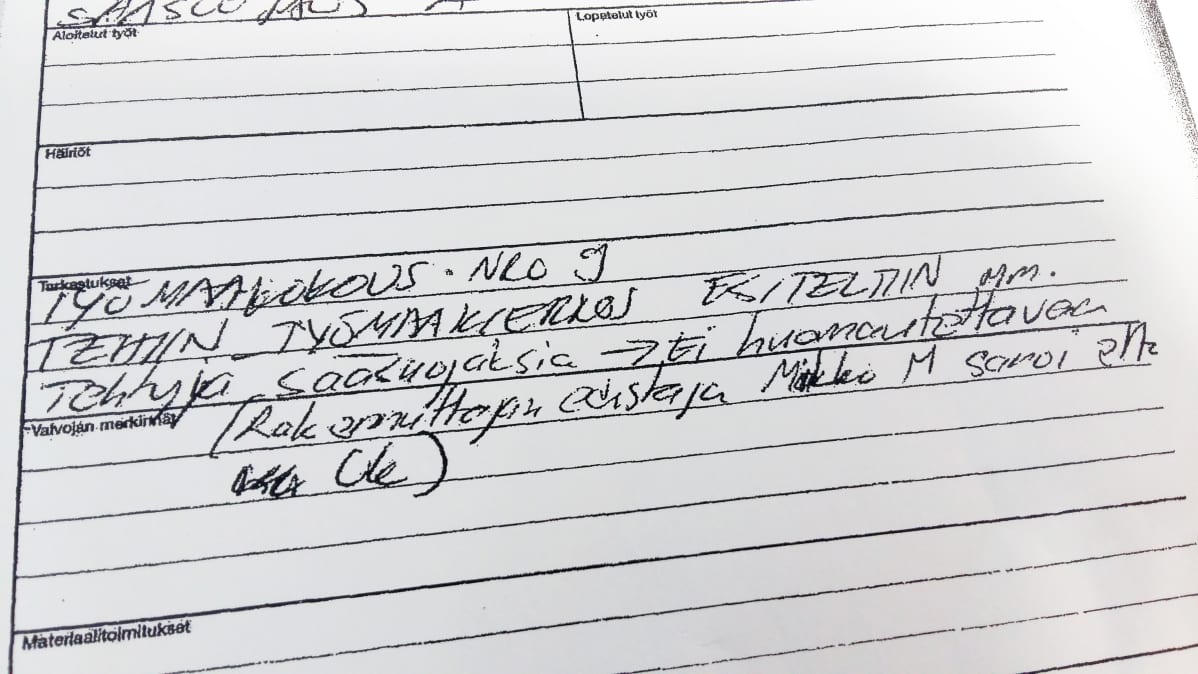 Aloitetut työt
Lopetetut työt
Häiriöt
Tarkastukset
TYÖMAAKOKOUS. NRO 9
TEHTIIN TYÖMAAKIERROS ESITELTIIN MM.
Tehtyjä sääsuojauksia → Ei huomautettavaa
Valvojan merkinnät
(Rakennuttajan edustaja Mikko M sanoi että
Ok)
Materiaalitoimitukset